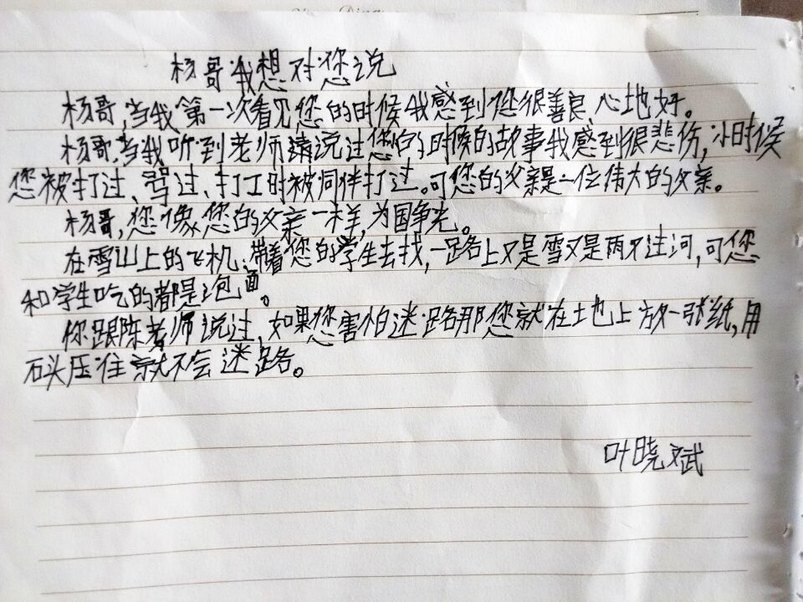 杨哥我想对您说
杨哥,当我第一次看见您的时候我感到您很善良,心地好。
杨哥,当我听到老师说过您小时候的故事我感到很悲伤,小时候
您被打过、骂过、打工时被同伴打过。可您的父亲是一位伟大的父亲。
杨哥,您像您的父亲一样,为国争光。
在雪山上的飞机,带着您的学生去找,一路上又是雪又是雨又过河,可您
和学生吃的都是包面。
你跟陈老师说过,如果您害怕迷路那您就在土地上放一张纸,用
石头压住就不会迷路。
叶晓斌